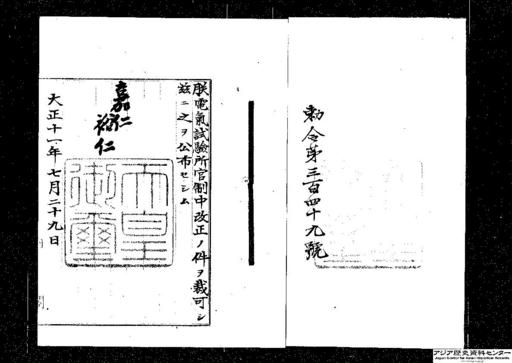 勅令第三百四十九號
朕電氣試驗所官制中改正ノ件ヲ裁可シ
茲ニ之ヲ公布セシム
嘉仁
裕仁
天皇御璽
大正十一年七月二十九日
アジア歴史資料センター
Japan Center for Asian Historical Records